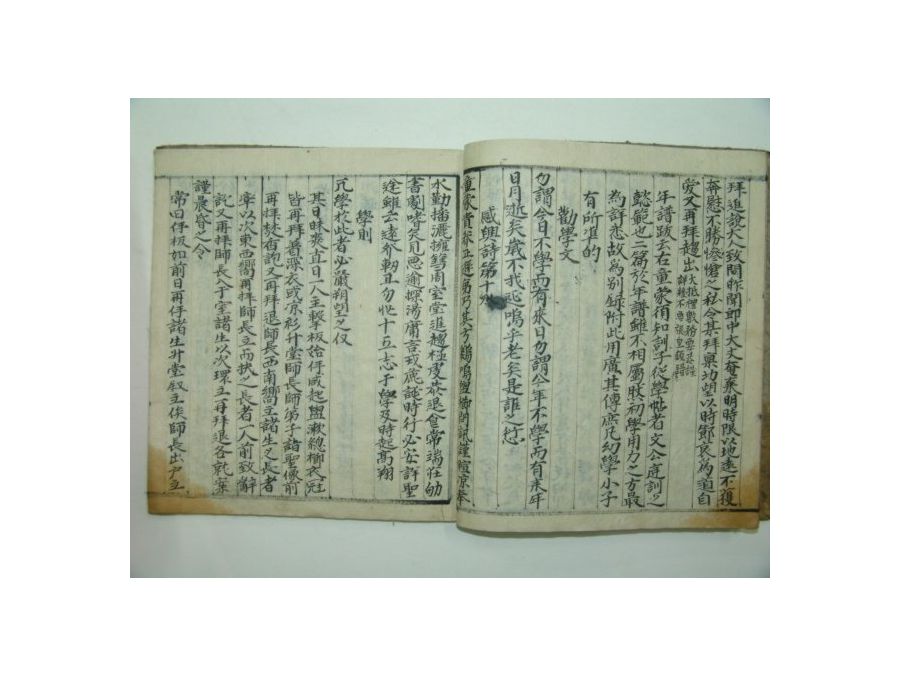 拜進說大人致問昨聞郎中大丈奄棄明時限以地遠不獲
奔慰不勝慘愴之私令其拜稟切望以時節哀為道自
愛又再拜趨出大抵禮數務要恭謹
詳緩不要張皇顛錯
年譜跋云右童蒙須知訓子從學帖者文公庭訓之
懿範也二篇於年譜雖不相屬然初學用力之方最
為詳悉故為別錄附此用廣其傳庶凡幼學小子
有所準的
勸學文
勿謂今日不學而有來日勿謂今年不學而有來年
日月逝矣歲不我延嗚乎老矣是誰之愆
感興詩第十
童蒙貴養正遜弟乃其方鷄鳴盥櫛問訊謹暄凉奉
水勤播灑擁篲周室堂進趨極虔恭退食常端莊劬
書劇嗜炙見惡逾探湯庸言戒麁誕時行必安詳聖
途雖云遠發軔且勿忙十五志于學及時起高翔
學則
凡學於此者必嚴朔望之仪
其日昧爽直日一人主擊板始擊咸起盥漱總櫛衣冠
皆再拜着深衣或凉衫升堂師長師弟子諸聖像前
再拜焚香訖又再拜退師長西南嚮立諸生之長者
率以次東西嚮再拜師長立而扶之長者一人前致辭
訖又再拜師長入于室諸生以次環立再拜退各就案
謹晨昏之令
常日擊板如前日再擊諸生升堂敍立俟師長出戶立